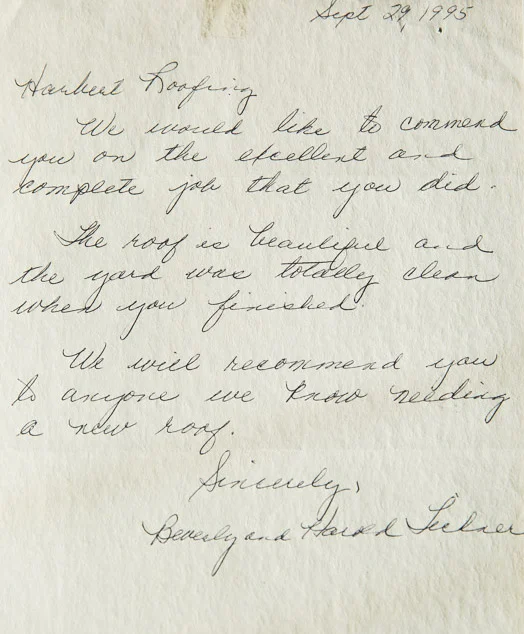 Sept 29, 1995
Harbert Roofing
We would like to commend
you on the excellent and
complete job that you did.
The roof is beautiful and
the yard was totally clean
when you finished.
We will recommend you
to anyone we know needing
a new roof.
Sincerely,
Beverly and Harold